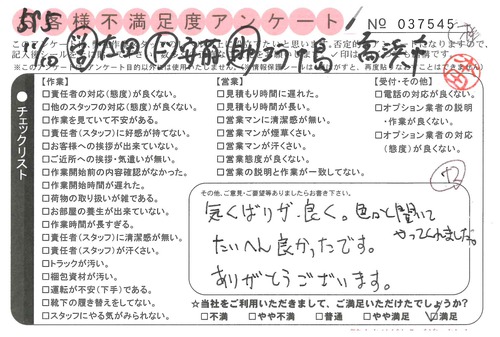 お客様不満足度アンケート
No 037545
チェックリスト
【作業】
□責任者の対応(態度)が良くない。
□他のスタッフの対応(態度)が良くない。
□作業を見ていて不安がある。
□責任者(スタッフ)に好感が持てない。
□お客様への挨拶が出来ていない。
□ご近所への挨拶・気遣いが無い。
□作業開始前の内容確認がなかった。
□作業開始時間が遅れた。
□荷物の取り扱いが雑である。
□お部屋の養生が出来ていない。
□作業時間が長すぎる。
□責任者(スタッフ)に清潔感が無い。
□責任者(スタッフ)が汗くさい。
□トラックが汚い。
□梱包資材が汚い。
□運転が不安(下手)である。
□靴下の履き替えをしてない。
□スタッフにやる気がみられない。
【営業】
□見積もり時間に遅れた。
□見積もり時間が長い。
□営業マンに清潔感が無い。
□営業マンが煙草くさい。
□営業マンが汗くさい。
□営業態度が良くない。
□営業の説明と作業が一致してない。
【受付・その他】
□電話の対応が良くない。
□オプション業者の説明
・作業が良くない。
□オプション業者の対応
(態度)が良くない。
その他、ご意見・ご要望等ありましたらお書き下さい。
気くばりが良く。色々と聞いて
やってくれました。
たいへん良かったです。
ありがとうございます。
☆当社をご利用いただきまして、ご満足いただけたでしょうか?
□不満 □やや不満 □普通 □やや満足 □満足